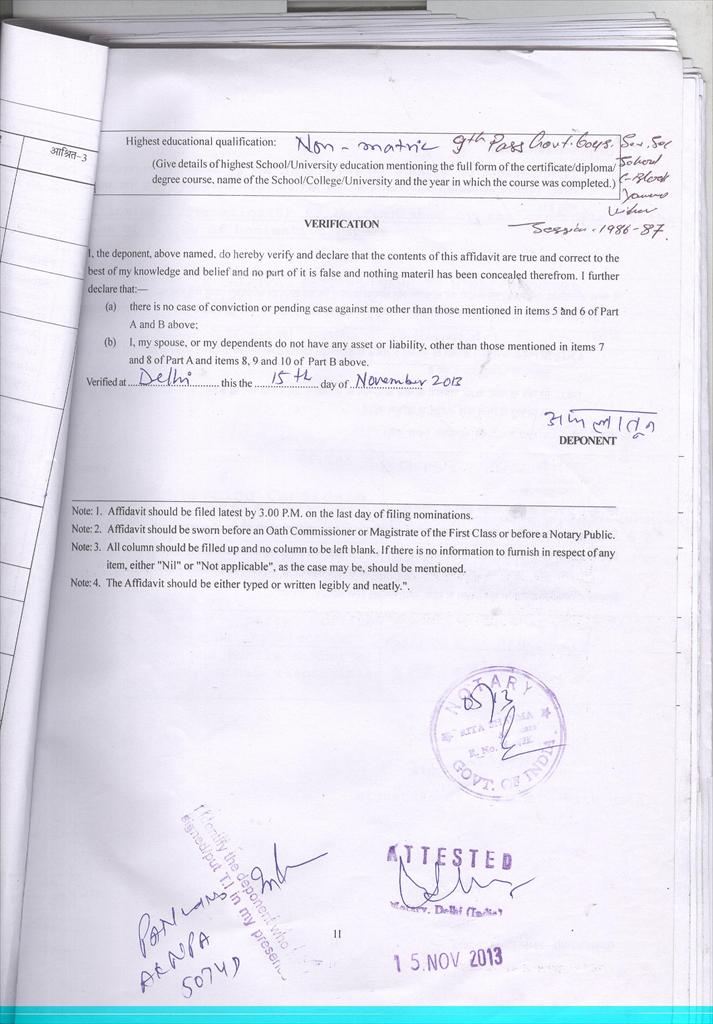 आश्रित-3
Highest educational qualification: Non-matric 9th Pass Govt. Boys. Sen. Sec
(Give details of highest School/University education mentioning the full form of the certificate/diploma/ School
degree course, name of the School/College/University and the year in which the course was completed.) C-Block
Vihar
VERIFICATION
Session. 1986-87.
I, the deponent, above named, do hereby verify and declare that the contents of this affidavit are true and correct to the
best of my knowledge and belief and no part of it is false and nothing materil has been concealed therefrom. I further
declare that:—
(a) there is no case of conviction or pending case against me other than those mentioned in items 5 and 6 of Part
A and B above;
(b) I, my spouse, or my dependents do not have any asset or liability, other than those mentioned in items 7
and 8 of Part A and items 8, 9 and 10 of Part B above.
Verified at Delhi this the 15th day of November 2013
DEPONENT
Note: 1. Affidavit should be filed latest by 3.00 P.M. on the last day of filing nominations.
Note: 2. Affidavit should be sworn before an Oath Commissioner or Magistrate of the First Class or before a Notary Public.
Note: 3. All column should be filled up and no column to be left blank. If there is no information to furnish in respect of any
item, either "Nil" or "Not applicable", as the case may be, should be mentioned.
Note: 4. The Affidavit should be either typed or written legibly and neatly.".
NOTARY
R. No.
GOVT. OF INDIA
I identify the deponent who
signed/put T.I in my presence
ATTESTED
Notary, Delhi (India)
11
15 NOV 2013